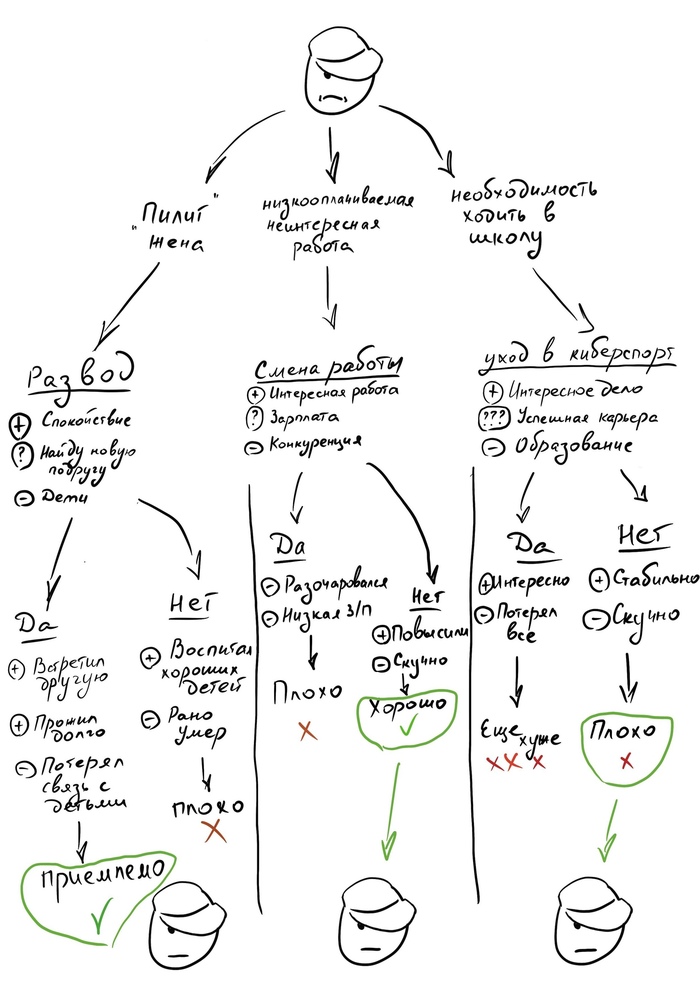 "Пилит"
жена
низкооплачиваемая
неинтересная
работа
необходимость
ходить в
школу
Развод
+ Спокойствие
? Найду новую
подругу
- Дети
Да
+ Встретил
другую
+ Прожил
долго
- Потерял
связь с
детьми
Приемлемо
Нет
+ Воспитал
хороших
детей
- Рано
умер
Плохо
Смена работы
+ Интересная работа
? Зарплата
- Конкуренция
Да
- Разочаровался
- Низкая з/п
Плохо
Нет
+ Повысили
- Скучно
Хорошо
уход в киберспорт
+ Интересное дело
??? Успешная карьера
- Образование
Да
+ Интересно
- Потерял
все
Еще хуже
Нет
+ Стабильно
- Скучно
Плохо